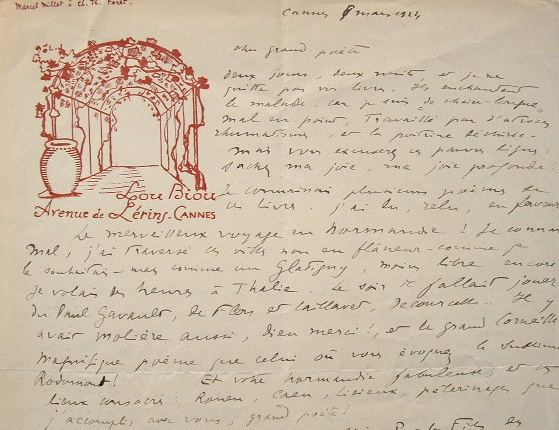 Marcel Millet à Ch. Th. Feret.
Cannes 8 mars 1924
cher grand poëte
deux jours, deux nuits, et je ne
quitte pas vos livres. Ils enchantent
le malade, car je suis, de chaise-longue,
mal en point, travaillé par d'atroces
rhumatismes, et la poitrine déchirée.
Mais vous excuserez ces pauvres lignes:
sachez ma joie, ma joie profonde!
Je connaissais plusieurs poëmes de
ces livres. j'ai lu, relu, en ferveur
Lou Biou
Avenue de Lérins-CANNES
Le merveilleux voyage en Normandie! Je connais
mal, j'ai traversé ces villes non en flâneur-comme je
le souhaitais-mais comme un Glatigny, moins libre encore
Je volais des heures à Thalie. Le soir il fallait jouer
du Paul Gavault, de Flers et Caillavet, Decourcelle... Il y
avait Molière aussi, Dieu merci!, et le grand Corneille
Magnifique poëme que celui où vous évoquez le sublime
Rodomont! Et votre Normandie fabuleuse, et ces
lieux consacrés: Rouen, Caen, Lisieux, pélerinages que
j'accomplis avec vous, grand poëte!